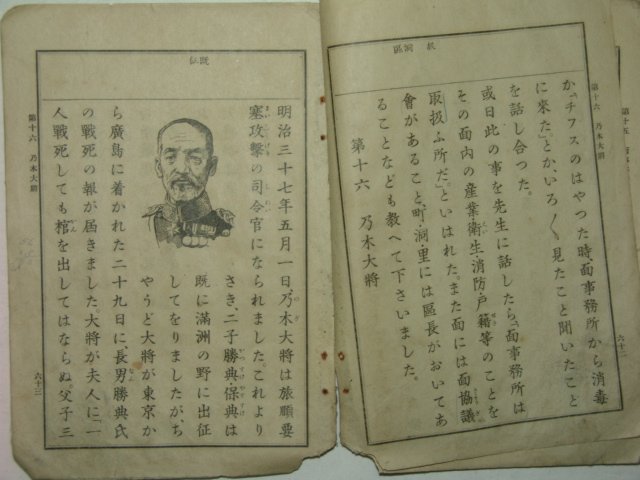 面 洞 區
か、「チフスのはやつた時、面事務所から消毒
に來た。」とか、いろ〳〵見たこと聞いたこと
を話し合つた。
或日此の事を先生に話したら、「面事務所は
その面内の産業・衛生・消防・戸籍等のことを
取扱ふ所だ。」といはれた。また面には面協議
會があること、町・洞里には區長がおいてあ
ることなども教へて下さいました。
第十六 乃木大將
第十六 乃木大將
六十二
既 征
明治三十七年五月一日、乃木大將は旅順要
塞攻撃の司令官になられました。これより
さき、二子勝典保典は
既に滿洲の野に出征
してをりましたが、ち
やうど大將が東京か
ら廣島に着かれた二十九日に、長男勝典氏
の戰死の報が屆きました。大將が夫人に「一
人戰死しても棺を出してはならぬ。父子三
第十六 乃木大將
六十三